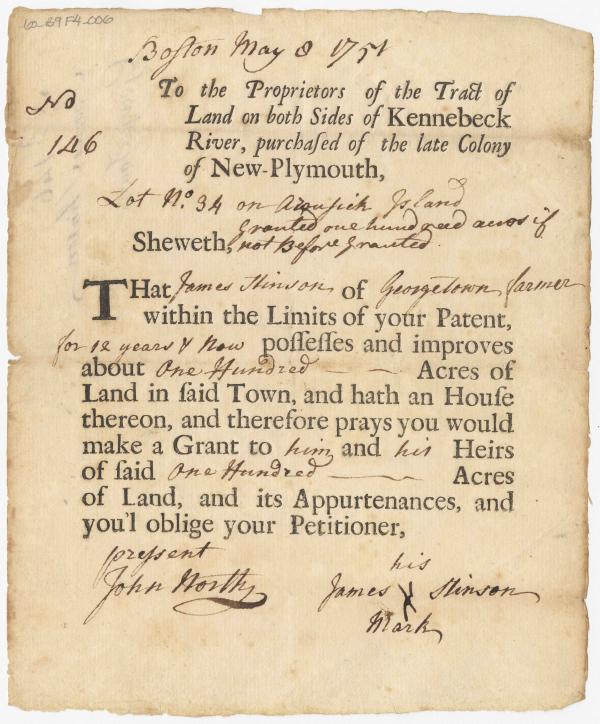 60_B9F4_006
Boston May 8 1751
No
146
To the Proprietors of the Tract of
Land on both Sides of Kennebeck
River, purchaſed of the late Colony
of New-Plymouth,
Lot No. 34 on Arousick Island
granted one hundred acres if
Sheweth, not Before Granted.
THat James Stinson of Georgetown farmer
within the Limits of your Patent,
for 12 years & Now poſſeſſes and improves
about One Hundred Acres of
Land in ſaid Town, and hath an Houſe
thereon, and therefore prays you would
make a Grant to him and his Heirs
of ſaid One Hundred Acres
of Land, and its Appurtenances, and
you'l oblige your Petitioner,
preſsent
John North
his
James X Stinson
Mark